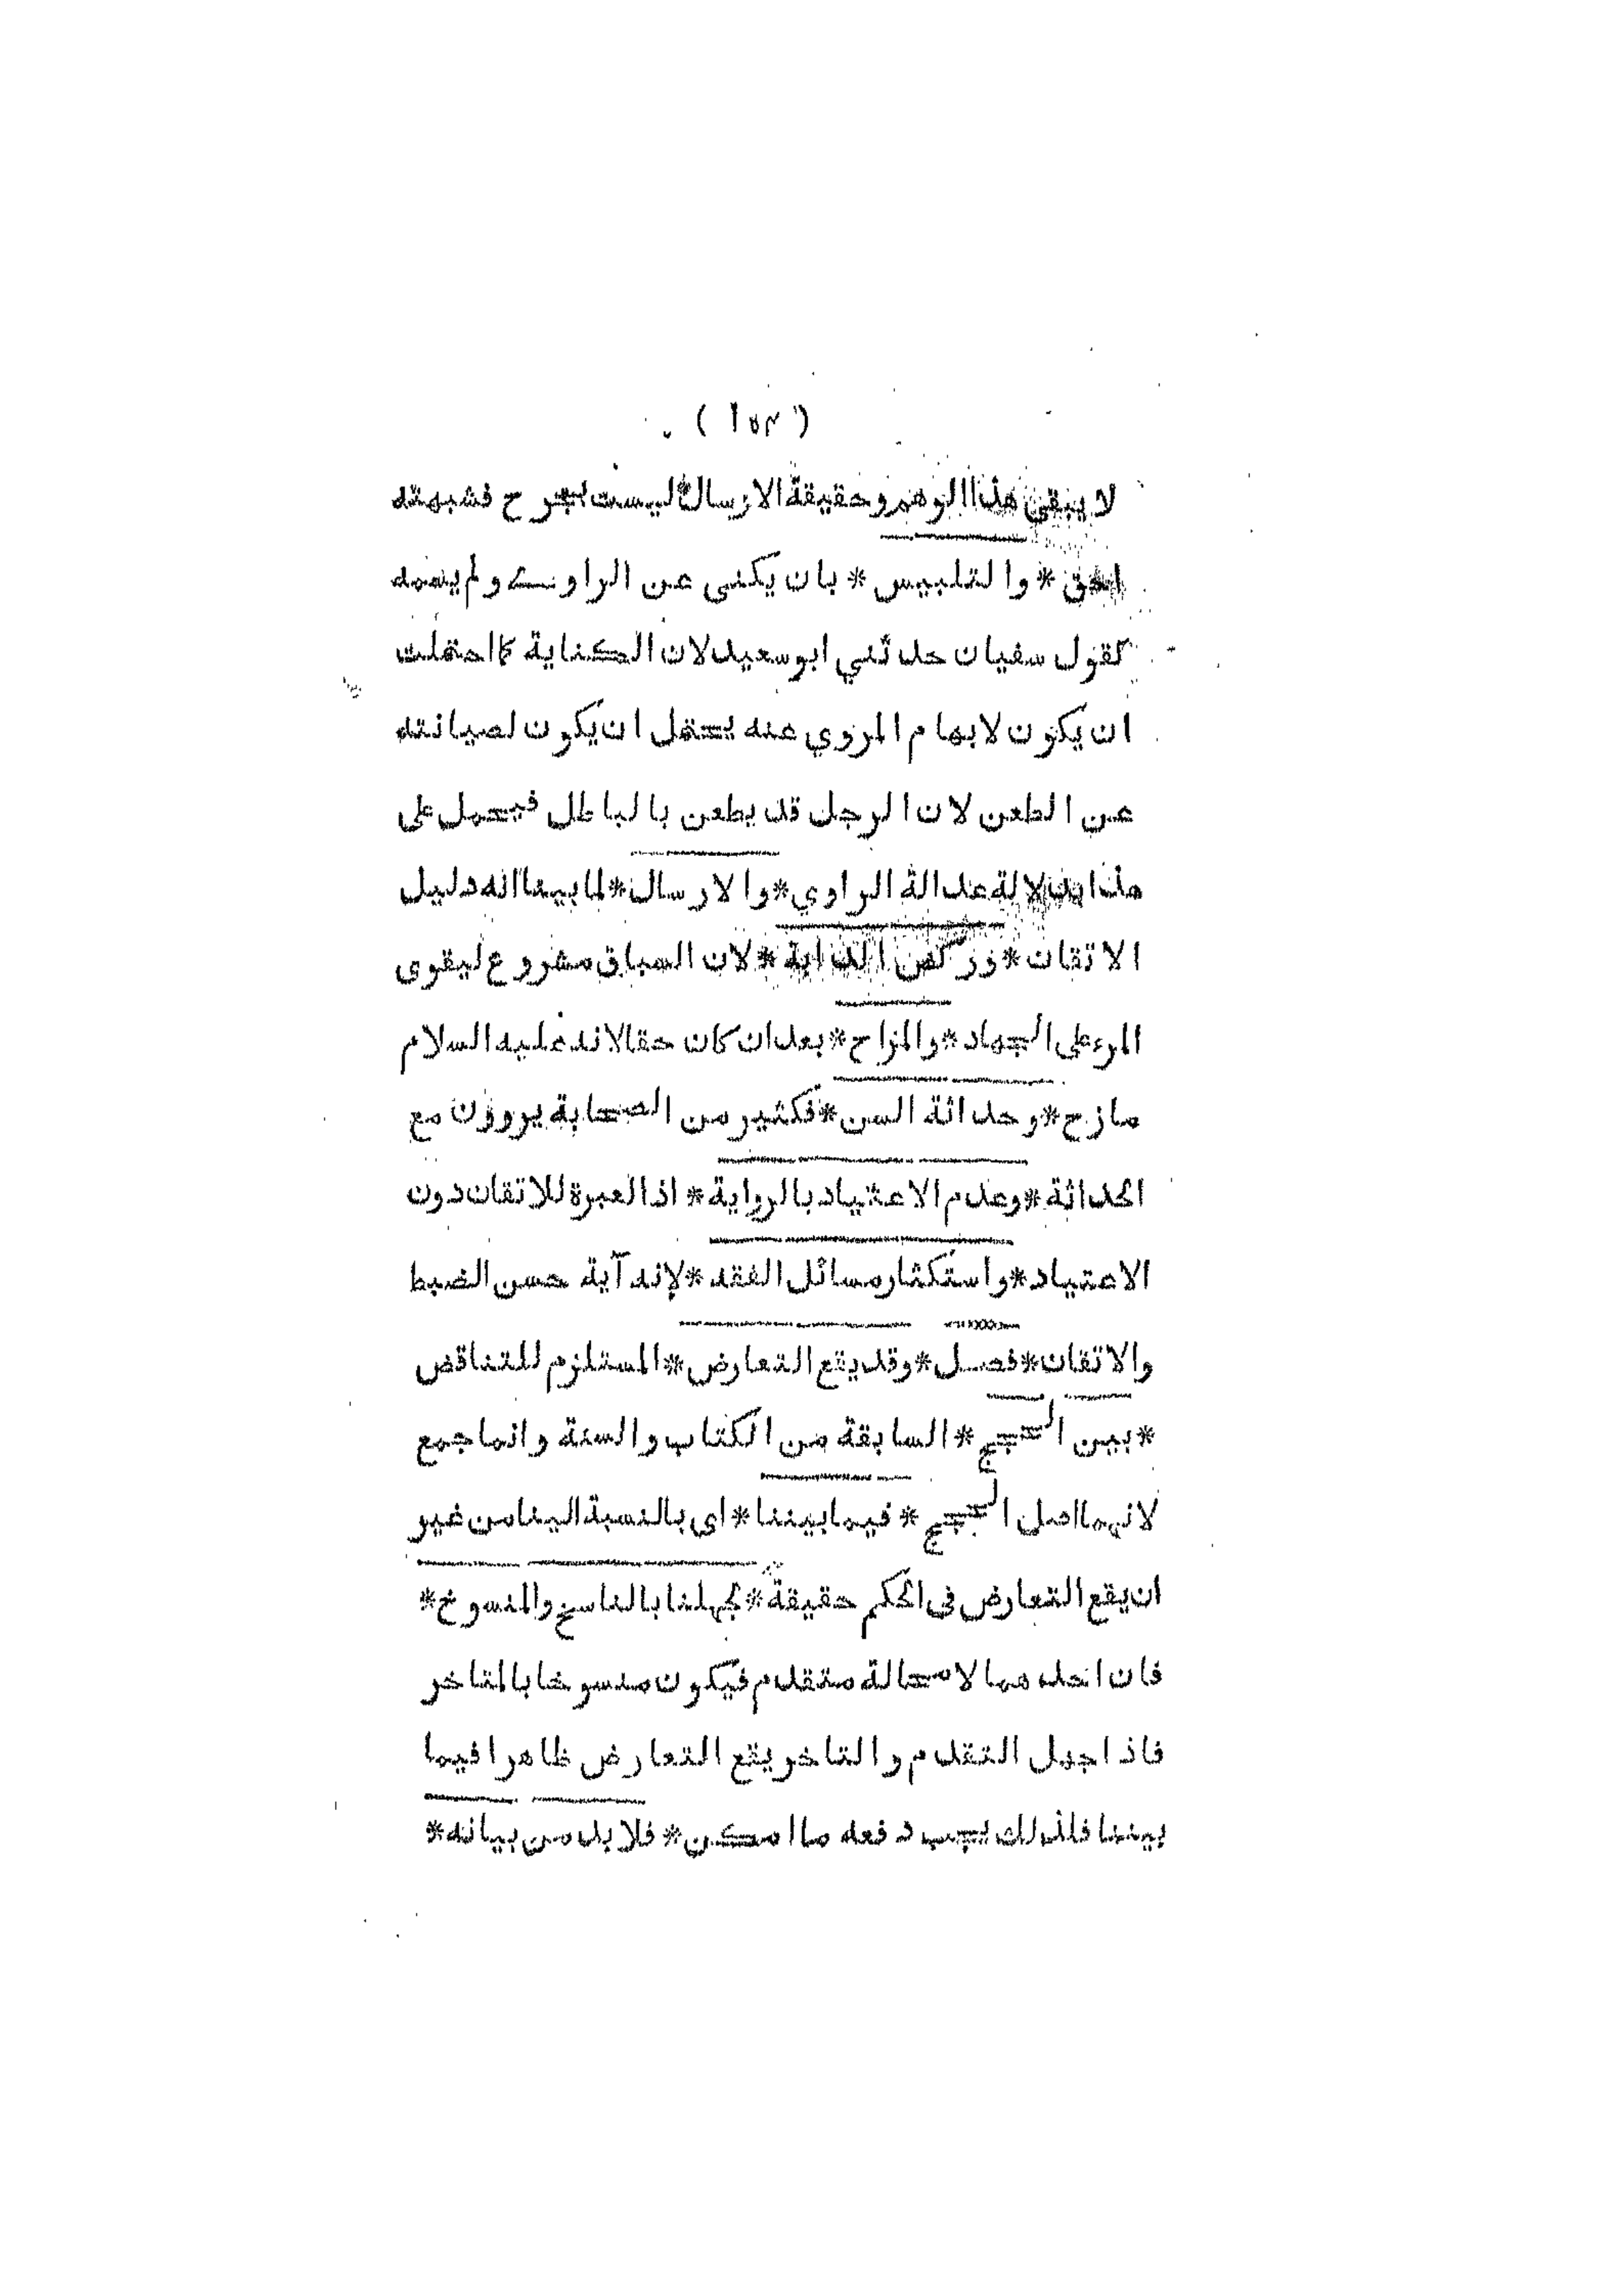 ( ١٥٣ )
لا يبقى هذا الوهم وحقيقة الارسال ليست بجرح فشبهته
احق * والتلبيس * بان يكنى عن الراوى ولم يسمه
كقول سفيان حدثني ابو سعيد لان الكناية كما احتملت
ان يكون لابهام المروي عنه يحتمل ان يكون لصيانته
عن الطعن لان الرجل قد يطعن بالباطل فيحمل على
هذا بدلالة عدالة الراوي * والارسال * لما بينا انه دليل
الاتقان * وركض الدابة * لان السباق مشروع ليقوى
المرء على الجهاد * والمزاح * بعد ان كان حقا لانه عليه السلام
مازح * وحداثة السن * فكثير من الصحابة يروون مع
الحداثة * وعدم الاعتياد بالرواية * اذ العبرة للاتقان دون
الاعتياد * واستكثار مسائل الفقه * لانه آية حسن الضبط
والاتقان * فصل * وقد يقع التعارض * المستلزم للتناقض
* بين الحجج * السابقة من الكتاب والسنة وانما جمع
لانهما اصل الحجج * فيما بيننا * اي بالنسبة الينا من غير
ان يقع التعارض فى الحكم حقيقة * لجهلنا بالناسخ والمنسوخ *
فان احدهما لا محالة متقدم فيكون منسوخا بالمتاخر
فاذا جهل التقدم والتاخر يقع التعارض ظاهرا فيما
بيننا فلذلك يجب دفعه ما امكن * فلا بد من بيانه *